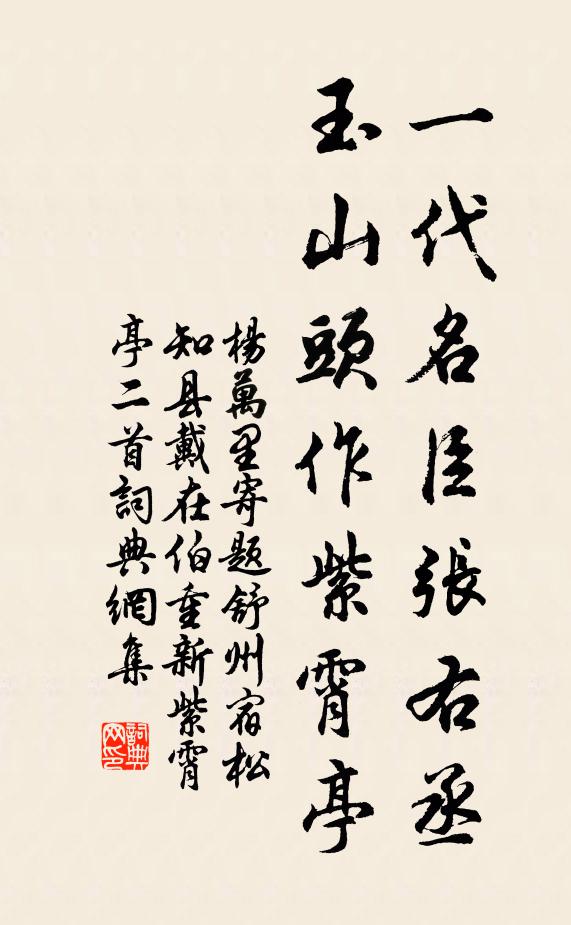 一代名臣張右丞
玉山頭作紫霄亭
楊萬里寄題舒州宿松
知县戴在伯重新紫霄
亭二首詞典網集
詞典
网印